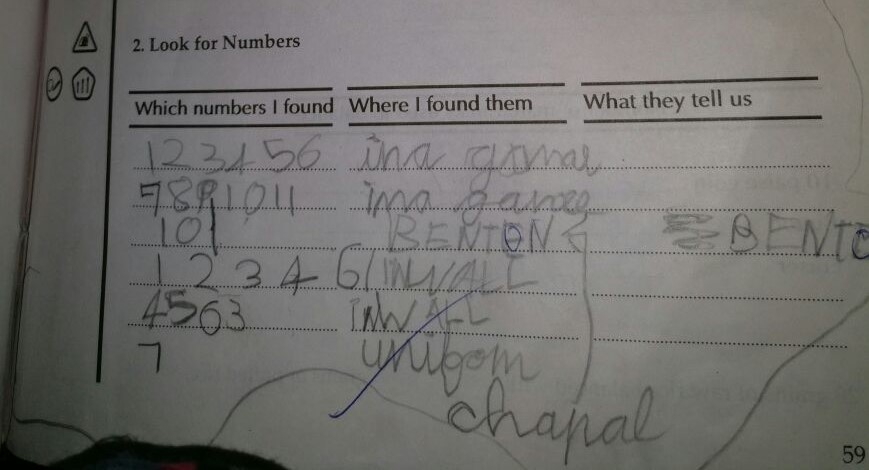 2. Look for Numbers
Which numbers I found Where I found them What they tell us
1 2 3 4 5 6 in a
7 8 9 10 11 in a games
101 BENTON BENTO
1 2 3 4 6 INWALL
4563 INWALL
7 unifom
chapal
59